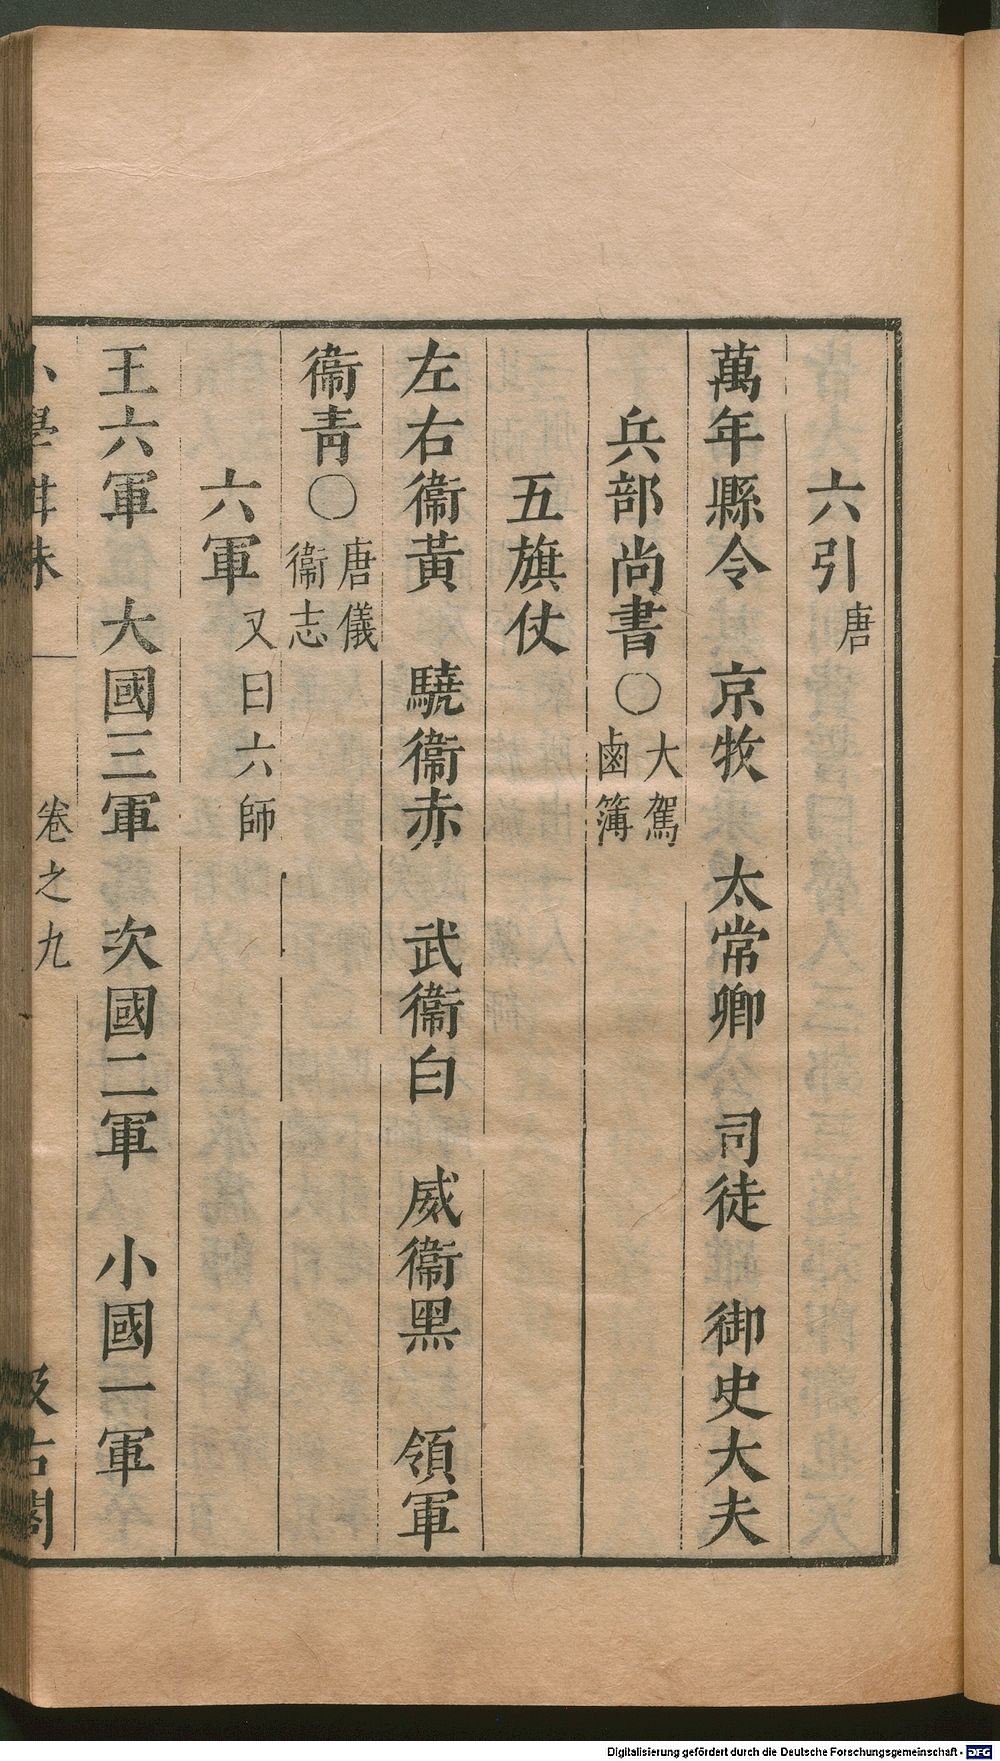 六引唐
萬年縣令　京牧　太常卿　司徒　御史大夫
兵部尚書○大駕鹵簿
五旗仗
左右衞黃　驍衞赤　武衞白　威衞黑　領軍
衞靑○唐儀衞志
六軍又曰六師
王六軍　大國三軍　次國二軍　小國一軍
小學紺珠　卷之九　汲古閣
Digitalisierung gefördert durch die Deutsche Forschungsgemeinschaft - DFG